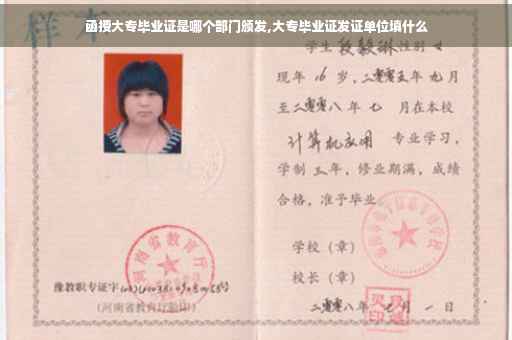 函授大专毕业证是哪个部门颁发,大专毕业证发证单位填什么
样本
学生段毅琳性别女
现年16岁，二零零五年九月
至二零零八年七月在本校
计算机应用 专业学习，
学制三年，修业期满，成绩
合格，准予毕业
学校（章）
校长（章）
二零零八年 月一日
河南省教育厅
豫教职专证字
(河南省教育厅验印)